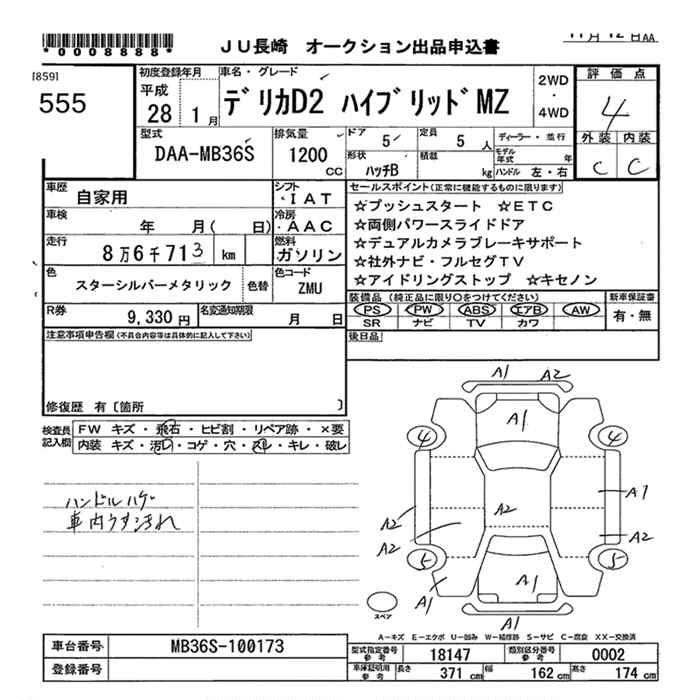 *0008888*
JU長崎 オークション出品申込書
11月 12日AA
[859]
555
初度登録年月
平成
28 1月
車名・グレード
デリカD2 ハイブリッドMZ
2WD
・
4WD
評価点
4
外装 内装
C C
型式
DAA-MB36S
排気量
1200 CC
ドア 5
定員 5 人
形状 ハッチB
積載 kg
ディーラー・並行
モデル年式 年
ハンドル 左・右
車歴 自家用
シフト ・IAT
車検 年 月( 日)
冷房 ・AAC
走行 8万6千713 km
燃料 ガソリン
色 スターシルバーメタリック 色替
色コード ZMU
R券 9,330円
名変通知期限 月 日
セールスポイント(正常に機能するものに限ります)
☆プッシュスタート ☆ETC
☆両側パワースライドドア
☆デュアルカメラブレーキサポート
☆社外ナビ・フルセグTV
☆アイドリングストップ ☆キセノン
装備品 (純正品に限り○をつけてください)
新車保証書
PS PW ABS エアB AW
有・無
SR ナビ TV カワ
注意事項申告欄(不具合内容等は具体的に記入して下さい)
後日品
修復歴 有〔箇所 〕
検査員記入欄
FW キズ・飛石・ヒビ割・リペア跡・×要
内装 キズ・汚レ・コゲ・穴・スレ・キレ・破レ
ハンドルハゲ
車内うす汚れ
A1 A2
A1
4 4
A1
A2 A2
A2 A2
5 5
A1 A1
A1
スペア
A-キズ E-エクボ U-凹み W-補修跡 S-サビ C-腐食 XX-交換済
車台番号 MB36S-100173
登録番号
型式指定番号 参考 18147
類別区分番号 参考 0002
車庫証明用 参考
長さ 371 cm
幅 162 cm
高さ 174 cm